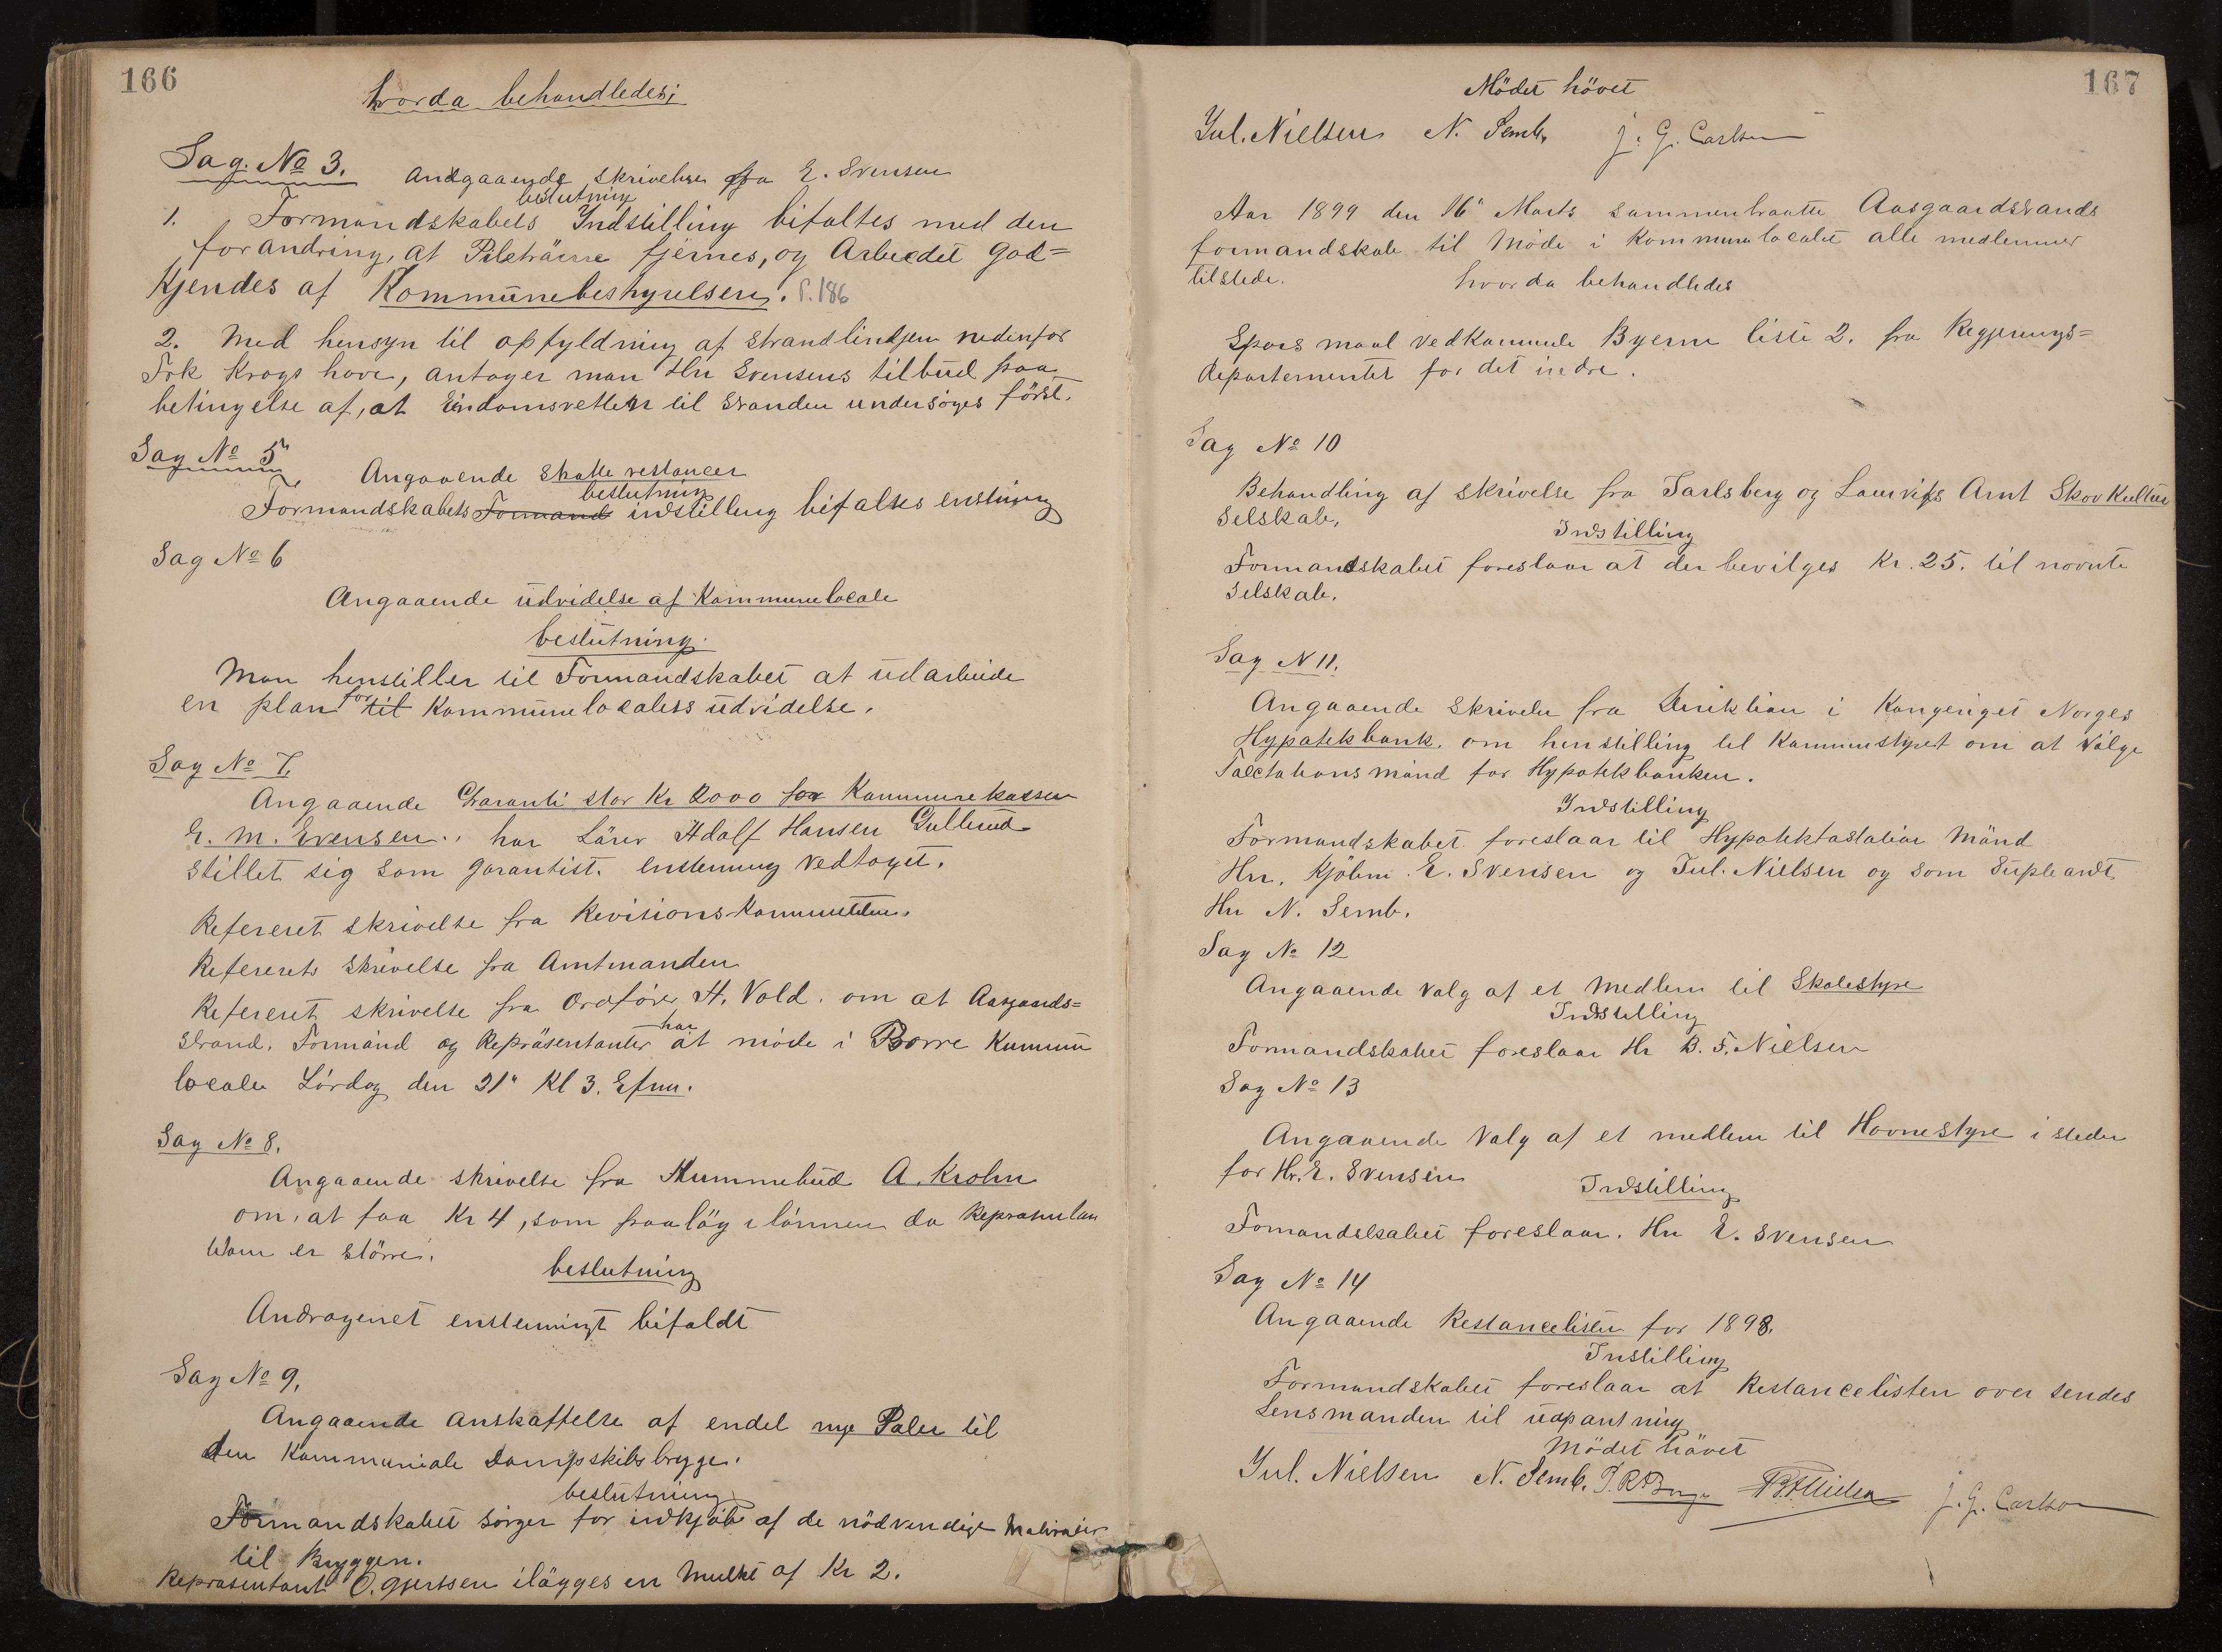 166
hvorda behandledes;
Sag. No 3. Andgaaende skrivelse fra E. Svensen
beslutning
1. Formandskabets Indstilling bifaltes med den
forandring, at Piletræerne fjernes, og Arbeidet god=
kjendes af Kommünebestyrelsen. S. 186
2. Med hensyn til opfyldning af Strandlinien nedenfor
Frk Krogs have, antager man Hr Svensens tilbud paa
betingelse af, at Eindomsretten til Stranden undersöges först.
Sag No 5
Angaaende Skatte restancer
beslutning
Formandskabets Formand indstilling bifaltes enstemig
Sag No 6
Angaaende üdvidelse af Kommunelocale
beslütning.
Man henstiller til Formandskabet at üdarbeide
en plan for til Kommünelocalets üdvidelse.
Sag No 7.
Angaaende Garanti stor Kr 2000 for Kommunekassen
E. M. Evensen. har Lärer Adolf Hansen Gullerud
stillet sig som garantist. enstemmig vedtaget.
Refereret skrivelse fra Revisions Kommitteen.
Refererets skrivelse fra Amtmanden
Refereret skrivelse fra Ordförer H. Vold. om at Aasgaards=
strand. Formänd og Repräsentanter har at möde i Borre Kommune
locale Lördag den 21" Kl 3. Efm.
Sag No 8.
Angaaende skrivelse fra Stummebud A. Krohn
om, at faa Kr 4, som paaläg i lönnen da Represantan
terne er större.
beslutning
Andragenet enstemmigt bifaldt
Sag No 9.
Angaaende anskaffelse af endel nye Paler til
den Kommuniale Dampskibsbrygge.
beslütning
Formandskabet sörger for indkjöb af de nödvendige Materialer
til Bryggen.
Repræsentant O. Gjertsen ilägges en Mulkt af Kr 2.
167
Mödet hövet
Jul. Nielsen N. Semb. J. G. Carlsen
Aar 1899 den 16" Marts sammentraatte Aasgaardstrands
formandskab til Möde i Kommunelocalet alle medlemmer
tilstede. hvorda behandledes
Spörs maal vedkommende Byerne liste 2. fra Regjerings=
departementet for det indre.
Sag No 10
Behandling af skrivelse fra Jarlsberg og Laurviks Amt Skovkultur
Selskab.
Indstilling
Formandskabet foreslaar at der bevilges Kr. 25. til nævnte
Selskab.
Sag N 11.
Angaaende skrivelse fra Direktion i Kongeriget Norges
Hypotekbank. om henstilling til Kommunestyret om at välge
Taxtationsmänd for Hypotekbanken.
Indstilling
Formandskabet foreslaar til Hypotektastation Mänd
Hr. Kjöbm. E. Svensen og Jul. Nielsen og som Supleant
Hr N. Semb.
Sag No 12
Angaaende valg af et Medlem til Skolestyre
Indstilling
Formandskabet foreslaar Hr B. F. Nielsen
Sag No 13
Angaaende Valg af et medlem til Havnestyre i steden
for Hr. E. Svensen
Indstilling
Formandskabet foreslaar. Hr E. Svensen
Sag No 14
Angaaende Restancelisten for 1898.
Instilling
Formandskabet foreslaar at Restancelisten over sendes
Lensmanden til üdpantning
Mödet hävet
Jul. Nielsen N. Semb. J. G. Carlsen